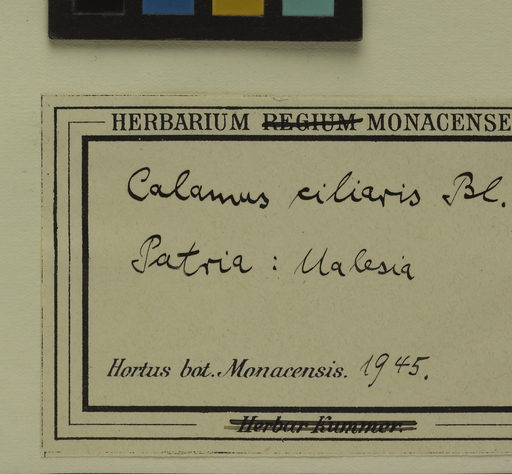 HERBARIUM REGIUM MONACENSE
Calamus ciliaris Bl.
Patria : Malesia
Hortus bot. Monacensis. 1945.
Herbar Kummer.